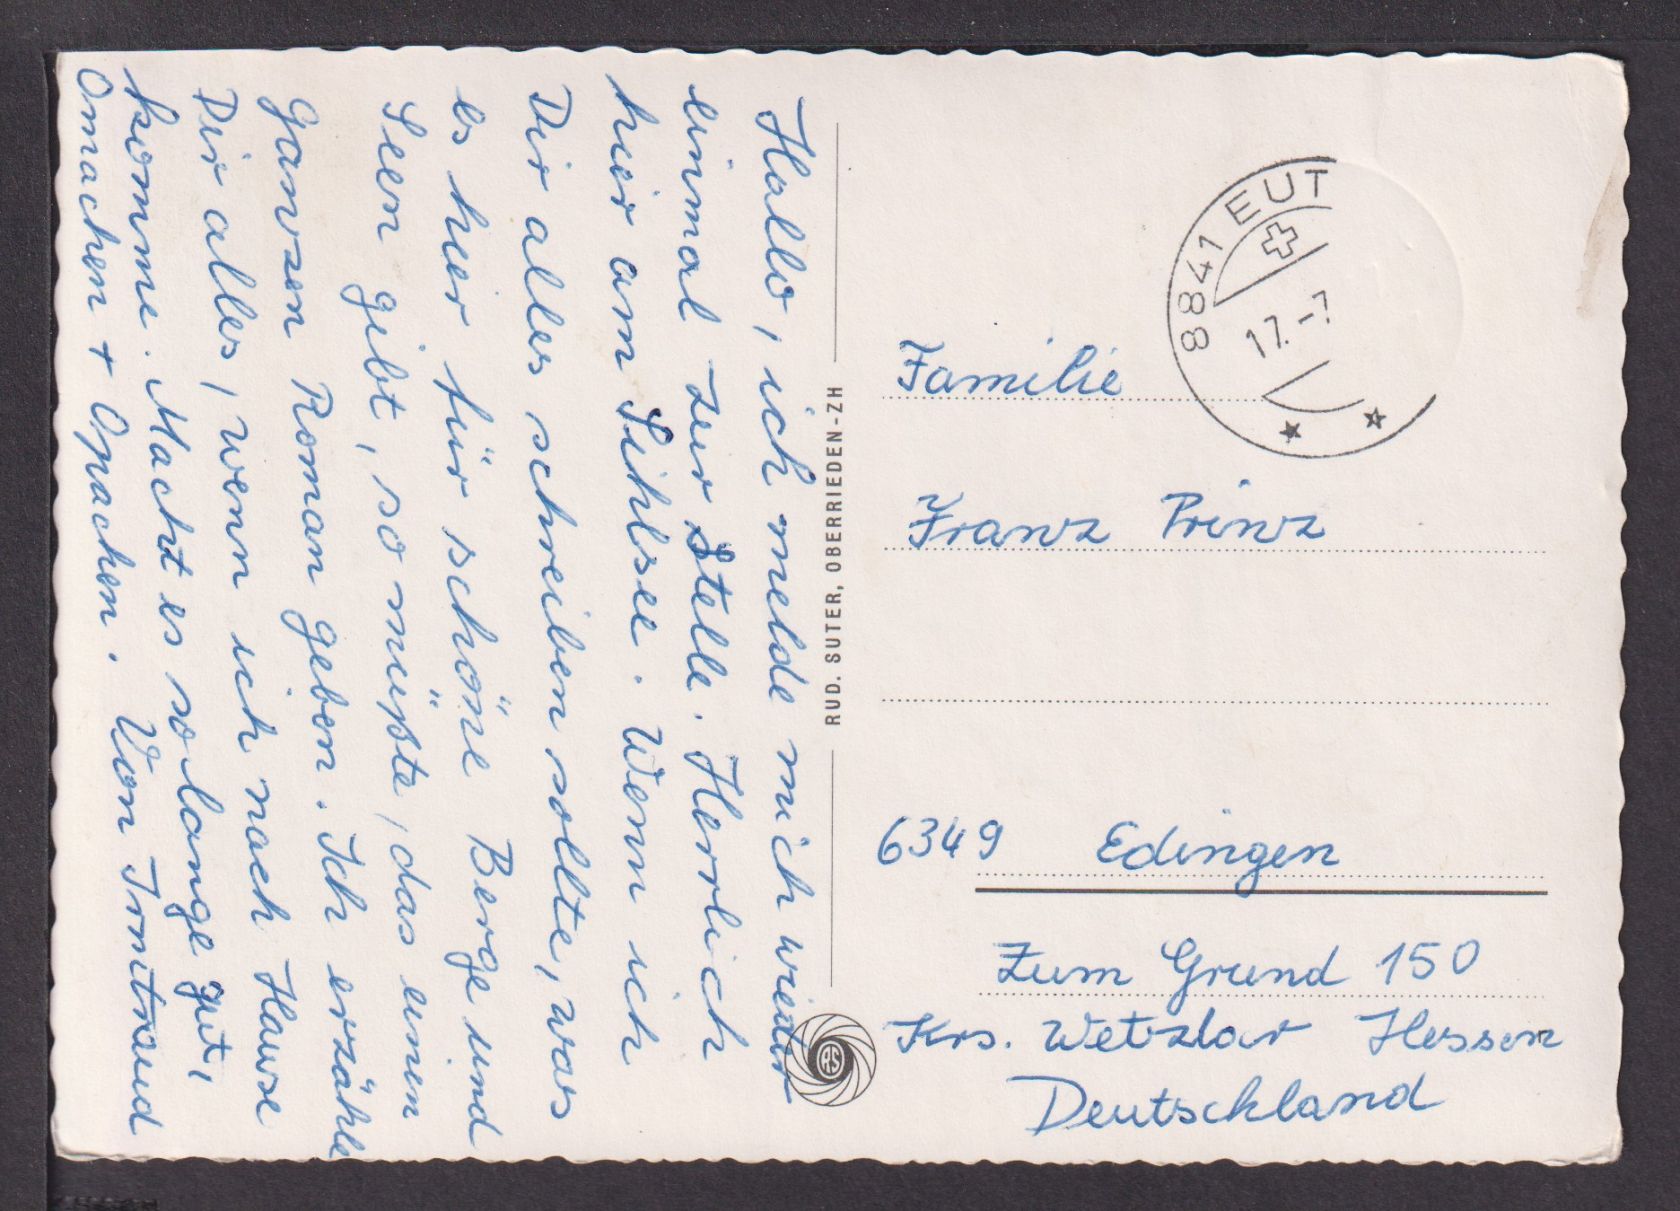 Hallo, ich melde mich wieder
einmal zur Stelle. Herrlich
hier am Sihlsee. Wenn ich
Dir alles schreiben sollte, was
es hier für schöne Berge und
Seen gibt, so müßte, das einen
Ganzen Roman geben. Ich erzähle
Dir alles, wenn ich nach Hause
komme. Macht es so lange gut,
Omachen + Opachen. Von Irmtraud
RUD. SUTER, OBERRIEDEN-ZH
RS
8841 EUT
17.-7
Familie
Franz Prinz
6349 Edingen
Zum Grund 150
Krs. Wetzlar Hessen
Deutschland